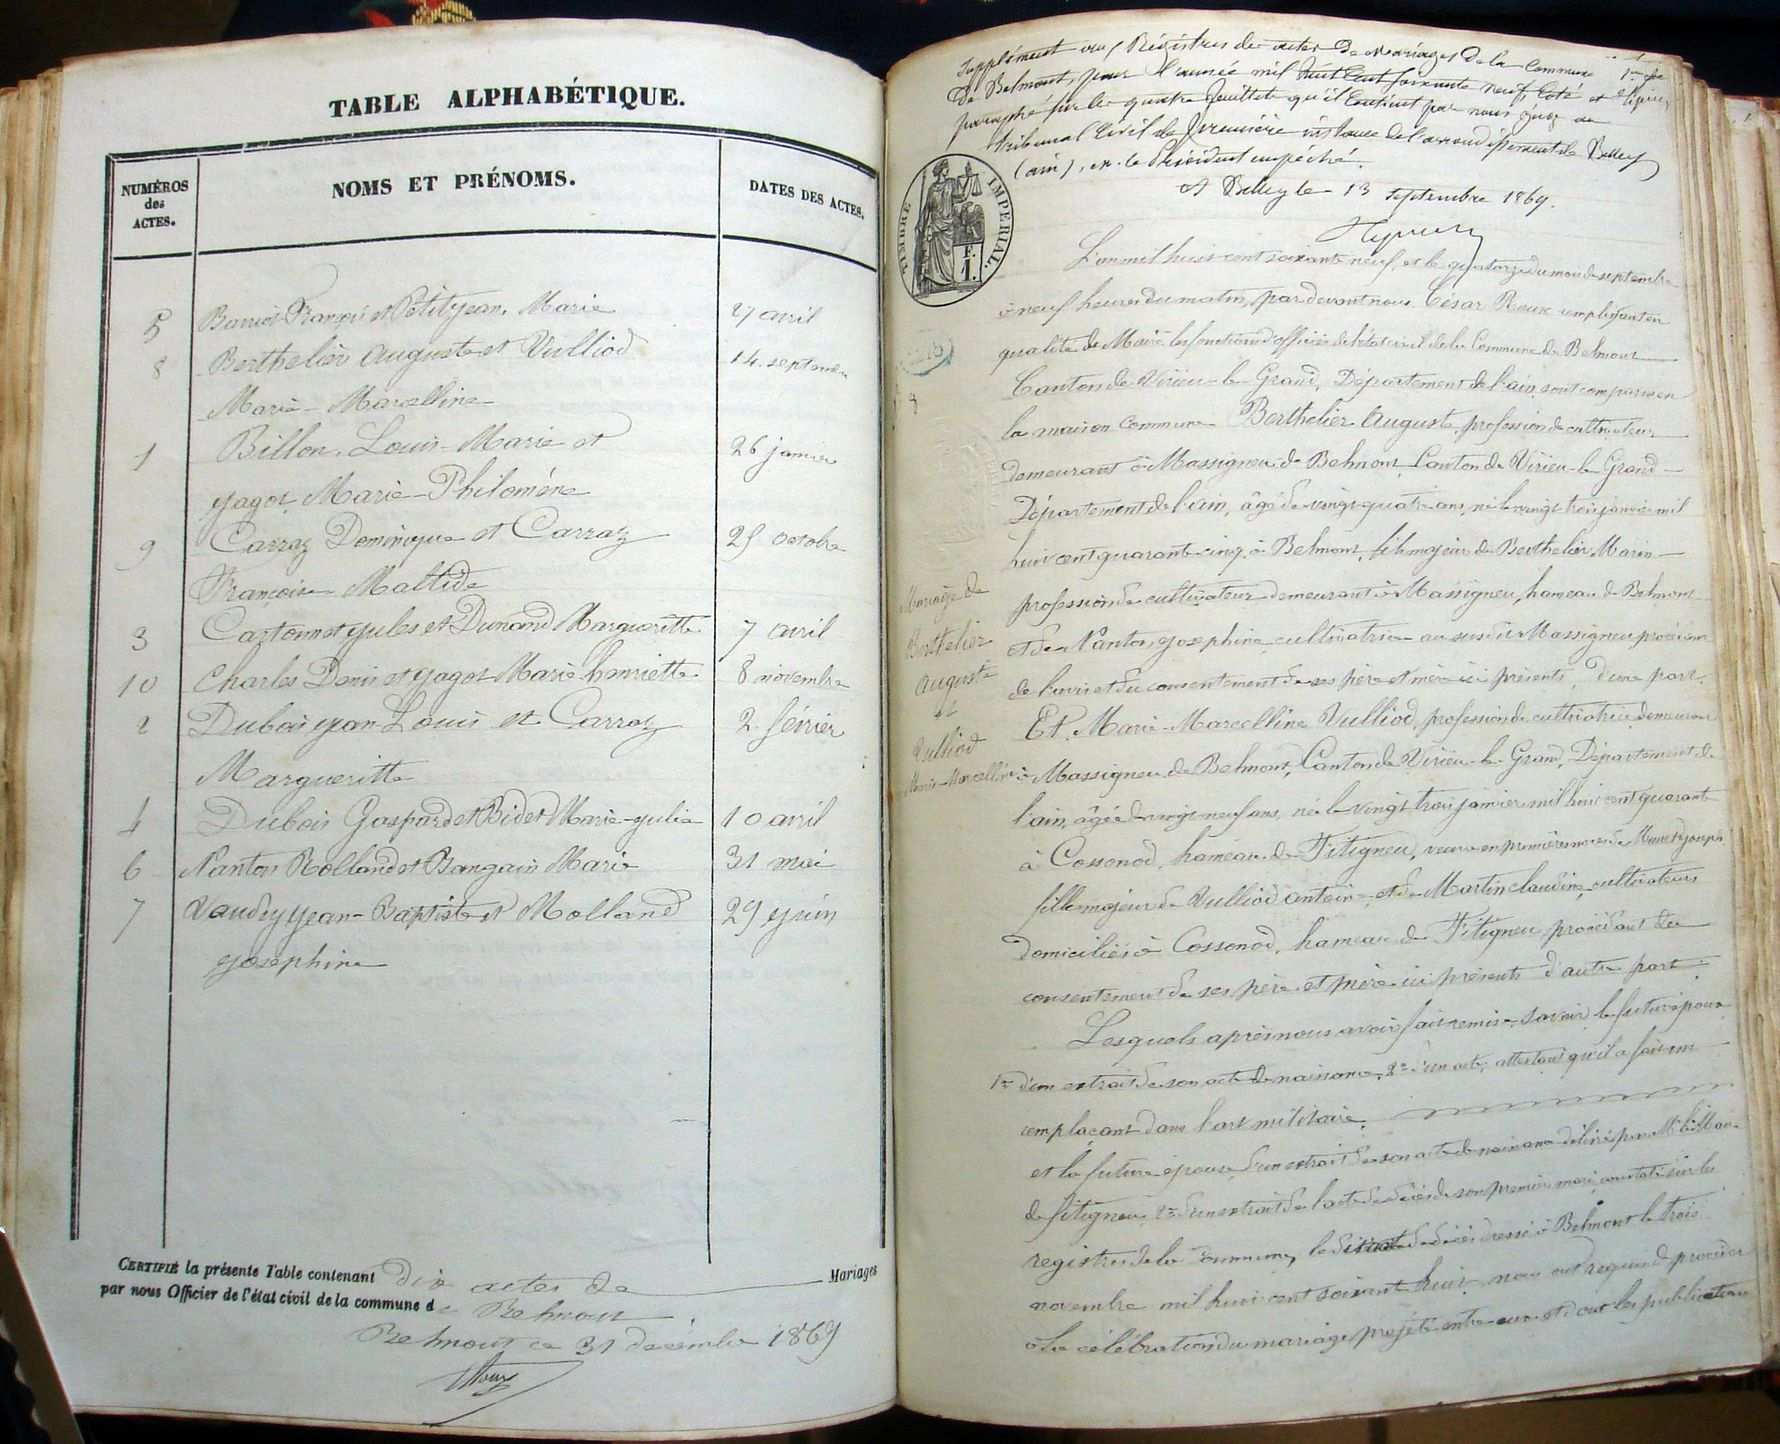 TABLE ALPHABÉTIQUE.
NUMÉROS des ACTES.
NOMS ET PRÉNOMS.
DATES DES ACTES.
5 Barriot François et Petitjean Marie 27 avril
8 Berthelier Auguste et Vulliod 14 septembre
Marie-Marcelline
1 Billon Louis-Marie et 26 janvier
Jagot Marie-Philomène
9 Carraz Dominique et Carraz 25 octobre
Françoise Maltide
3 Cartonnet Jules et Dunand Margueritte 7 avril
10 Charles Denis et Jagot Marie henriette 8 novembre
2 Dubois Jean-Louis et Carraz 2 février
Margueritte
4 Dubois Gaspard et Bidet Marie-Julie 10 avril
6 Nanton Rolland et Bangain Marie 31 mai
7 Vaudey Jean-Baptiste et Molland 29 juin
Josephine
CERTIFIÉ la présente Table contenant dix actes de Mariages
par nous Officier de l'état civil de la commune de Belmont
Belmont ce 31 décembre 1869
Roux
Supplément aux Régistres des actes de Mariages de la Commune
de Belmont, pour l'année mil huit cent soixante neuf, coté et
paraphé sur les quatre feuillets qu'il contient par nous Juge au
tribunal Civil de première instance de l'arrondissement de Belley
(ain), M. le Président empêché.
A Belley le 13 septembre 1869.
TIMBRE IMPERIAL.
F.
1.
L'an mil huit cent soixante neuf, et le quatorze du mois de septembre
à neuf heures du matin, par devant nous César Roux remplissant en
qualité de Maire les fonctions d'officier de l'état civil de la Commune de Belmont
Canton de Virieu-le-Grand, Département de l'ain, sont comparus en
8
la maison Commune Berthelier Auguste, profession de cultivateur
demeurant à Massigneu de Belmont Canton de Virieu-le-Grand
Département de l'ain, âgé de vingt-quatre ans, né le vingt trois janvier mil
huit cent quarante cinq à Belmont, fils majeur de Berthelier Marin
Mariage de
Berthelier
Auguste
et
Vulliod
Marie-Marcelline
profession de cultivateur demeurant à Massigneu, hameau de Belmont
et de Nanton Josephine cultivatrice au susdit Massigneu procédant
de l'avis et du consentement de ses père et mère ici présents, d'une part.
Et Marie-Marcelline Vulliod, profession de cultivatrice demeurant
à Massigneu de Belmont, Canton de Virieu-le-Grand, Département de
l'ain, âgée de vingt-neuf ans, née le vingt trois janvier mil huit cent quarante
à Cossonod, hameau de Fitigneu, veuve en premières noces de
fille majeure de Vulliod antoine et de Martin claudine, cultivateurs
domiciliés à Cossonod, hameau de Fitigneu, procédant du
consentement de ses père et mère ici présents d'autre part.
Lesquels après nous avoir fait remise, savoir le futur époux
1° d'un extrait de son acte de naissance, 2° d'un acte, attestant qu'il a fait un
remplaçant dans l'art militaire.
et la future épouse d'un extrait de son acte de naissance délivré par Mr le Maire
de fitigneu, 2° d'un extrait de l'acte de décès de son premier mari, constaté sur les
registres de la Commune, le de décès dressé à Belmont le trois
novembre mil huit cent soixante huit, nous ont requis de procéder
à la célébration du mariage projeté entre eux et dont les publications